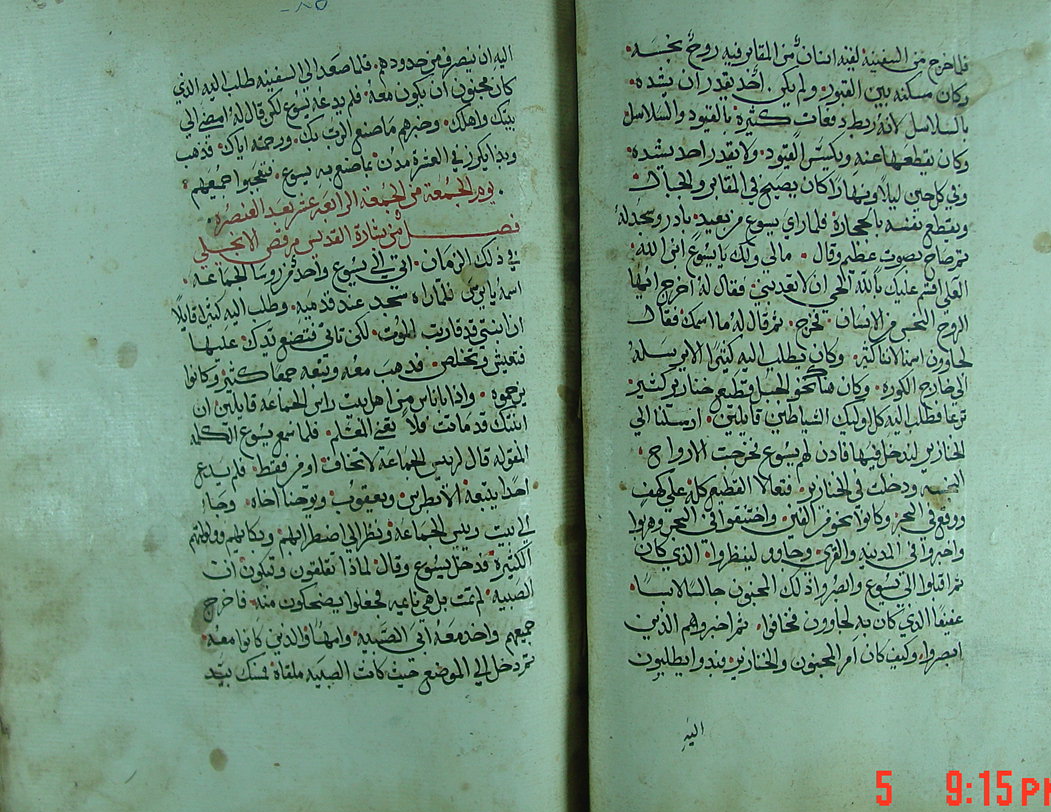 فلما خرج من السفينة لقيه انسان من المقابر فيه روح نجسه
وكان مسكنه بين القبور ولم يكن احد يقدر ان يشده
بالسلاسل لانه ربط دفعات كثيرة بالقيود والسلاسل
وكان يقطعها عنه ويكسر القيود ولا يقدر احد يشده
وفي كل حين ليلا ونهارا كان يصيح في المقابر والجبال
ويقطع نفسه بالحجارة فلما راي يسوع من بعيد بادر وسجد له
ثم صاح بصوت عظيم وقال مالي ولك يا يسوع ابن الله
العلي اقسم عليك بالله الحي ان لا تعذبني فقال له اخرج ايها
الروح النجس من الانسان فخرج ثم قال له ما اسمك فقال
لجاوون اسمنا لاننا كثير وكان يطلب اليه كثيرا الا يرسله
الي خارج الكورة وكان هناك نحو الجبل قطيع خنازير كثير
ترعا فطلب اليه كل اوليك الشياطين قايلين ارسلنا الي
الخنازير لندخل فيها فاذن لهم يسوع فخرجت الارواح
النجسه ودخلت في الخنازير فتعالا القطيع كله علي كهف
ووقع في البحر وكانوا نحو من الفين واختنقوا في البحر وهربوا
واخبروا في المدينه والقري وجاوو لينظروا الذي كان
ثم اقبلوا الي يسوع وابصروا ذلك المجنون جالسا لابسا
عفيفا الذي كان به لجاوون فخافوا ثم اخبروهم الذين
ابصروا وكيف كان امر المجنون والخنازير فبدوا يطلبون
اليه
اليه ان ينصرف من حدودهم فلما صعد الي السفينه طلب اليه الذي
كان مجنون ان يكون معه فلم يدعه يسوع لكن قال له امضي الي
بيتك واهلك وخبرهم ما صنع الرب بك ورحمته اياك فذهب
وبدا يكرز في العشرة مدن بما صنع به يسوع فتعجبوا جميعهم
يوم الجمعة من الجمعة الرابعة عشر بعد العنصرة
فصل من بشارة القديس مرقص الانجيلي
في ذلك الزمان اتي الي يسوع واحد من روسا الجماعه
اسمه يايرس فلما راه سجد عند قدميه وطلب اليه كثيرا قايلا
ان ابنتي قد قاربت الموت لكن تاتي فتضع يدك عليها
فتعيش وتخلص فذهب معه وتبعه جمعا كثير وكانوا
يزحموه واذا باناس من اهل بيت راس الجماعه قايلين ان
ابنتك قد ماتت فلا تعني المعلم فلما سمع يسوع الكلمه
المقوله قال لرييس الجماعه لا تخاف اومن فقط فلم يدع
احدا يتبعه الا بطرس ويعقوب ويوحنا اخاه وجاء
الي بيت رييس الجماعه ونظر الي اضطرابهم وبكايهم وولولتهم
الكثيرة فدخل يسوع وقال لماذا تقلقون وتبكون ان
الصبيه لم تمت بل هي نايمه فجعلوا يضحكون منه فاخرج
جميعهم واخذ معه ابي الصبيه وامها والذين كانوا معه
ثم دخل الي الموضع حيث كانت الصبيه ملقاة فمسك بيد
5 9:15 PM